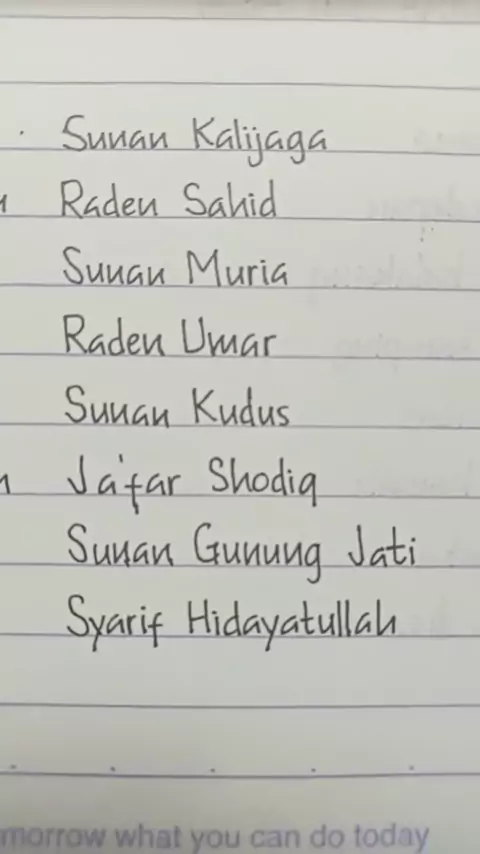 Sunan Kalijaga
Raden Sahid
Sunan Muria
Raden Umar
Sunan Kudus
Ja'far Shodiq
Sunan Gunung Jati
Syarif Hidayatullah
what you can do today